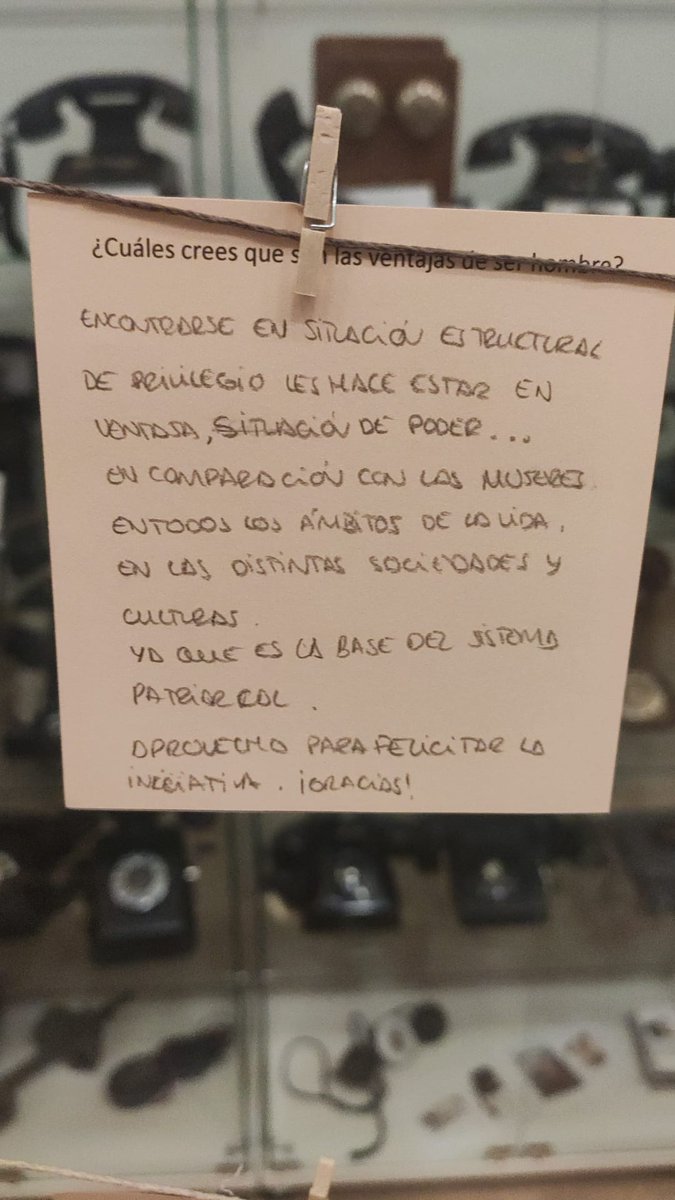 ¿Cuáles crees que son las ventajas de ser hombre?
ENCONTRARSE EN SITUACIÓN ESTRUCTURAL
DE PRIVILEGIO LES HACE ESTAR EN
VENTAJA, SITUACIÓN DE PODER...
EN COMPARACIÓN CON LAS MUJERES
EN TODOS LOS ÁMBITOS DE LA VIDA,
EN LAS DISTINTAS SOCIEDADES Y
CULTURAS.
YA QUE ES LA BASE DEL SISTEMA
PATRIARCAL.
APROVECHO PARA FELICITAR LA
INICIATIVA. ¡GRACIAS!